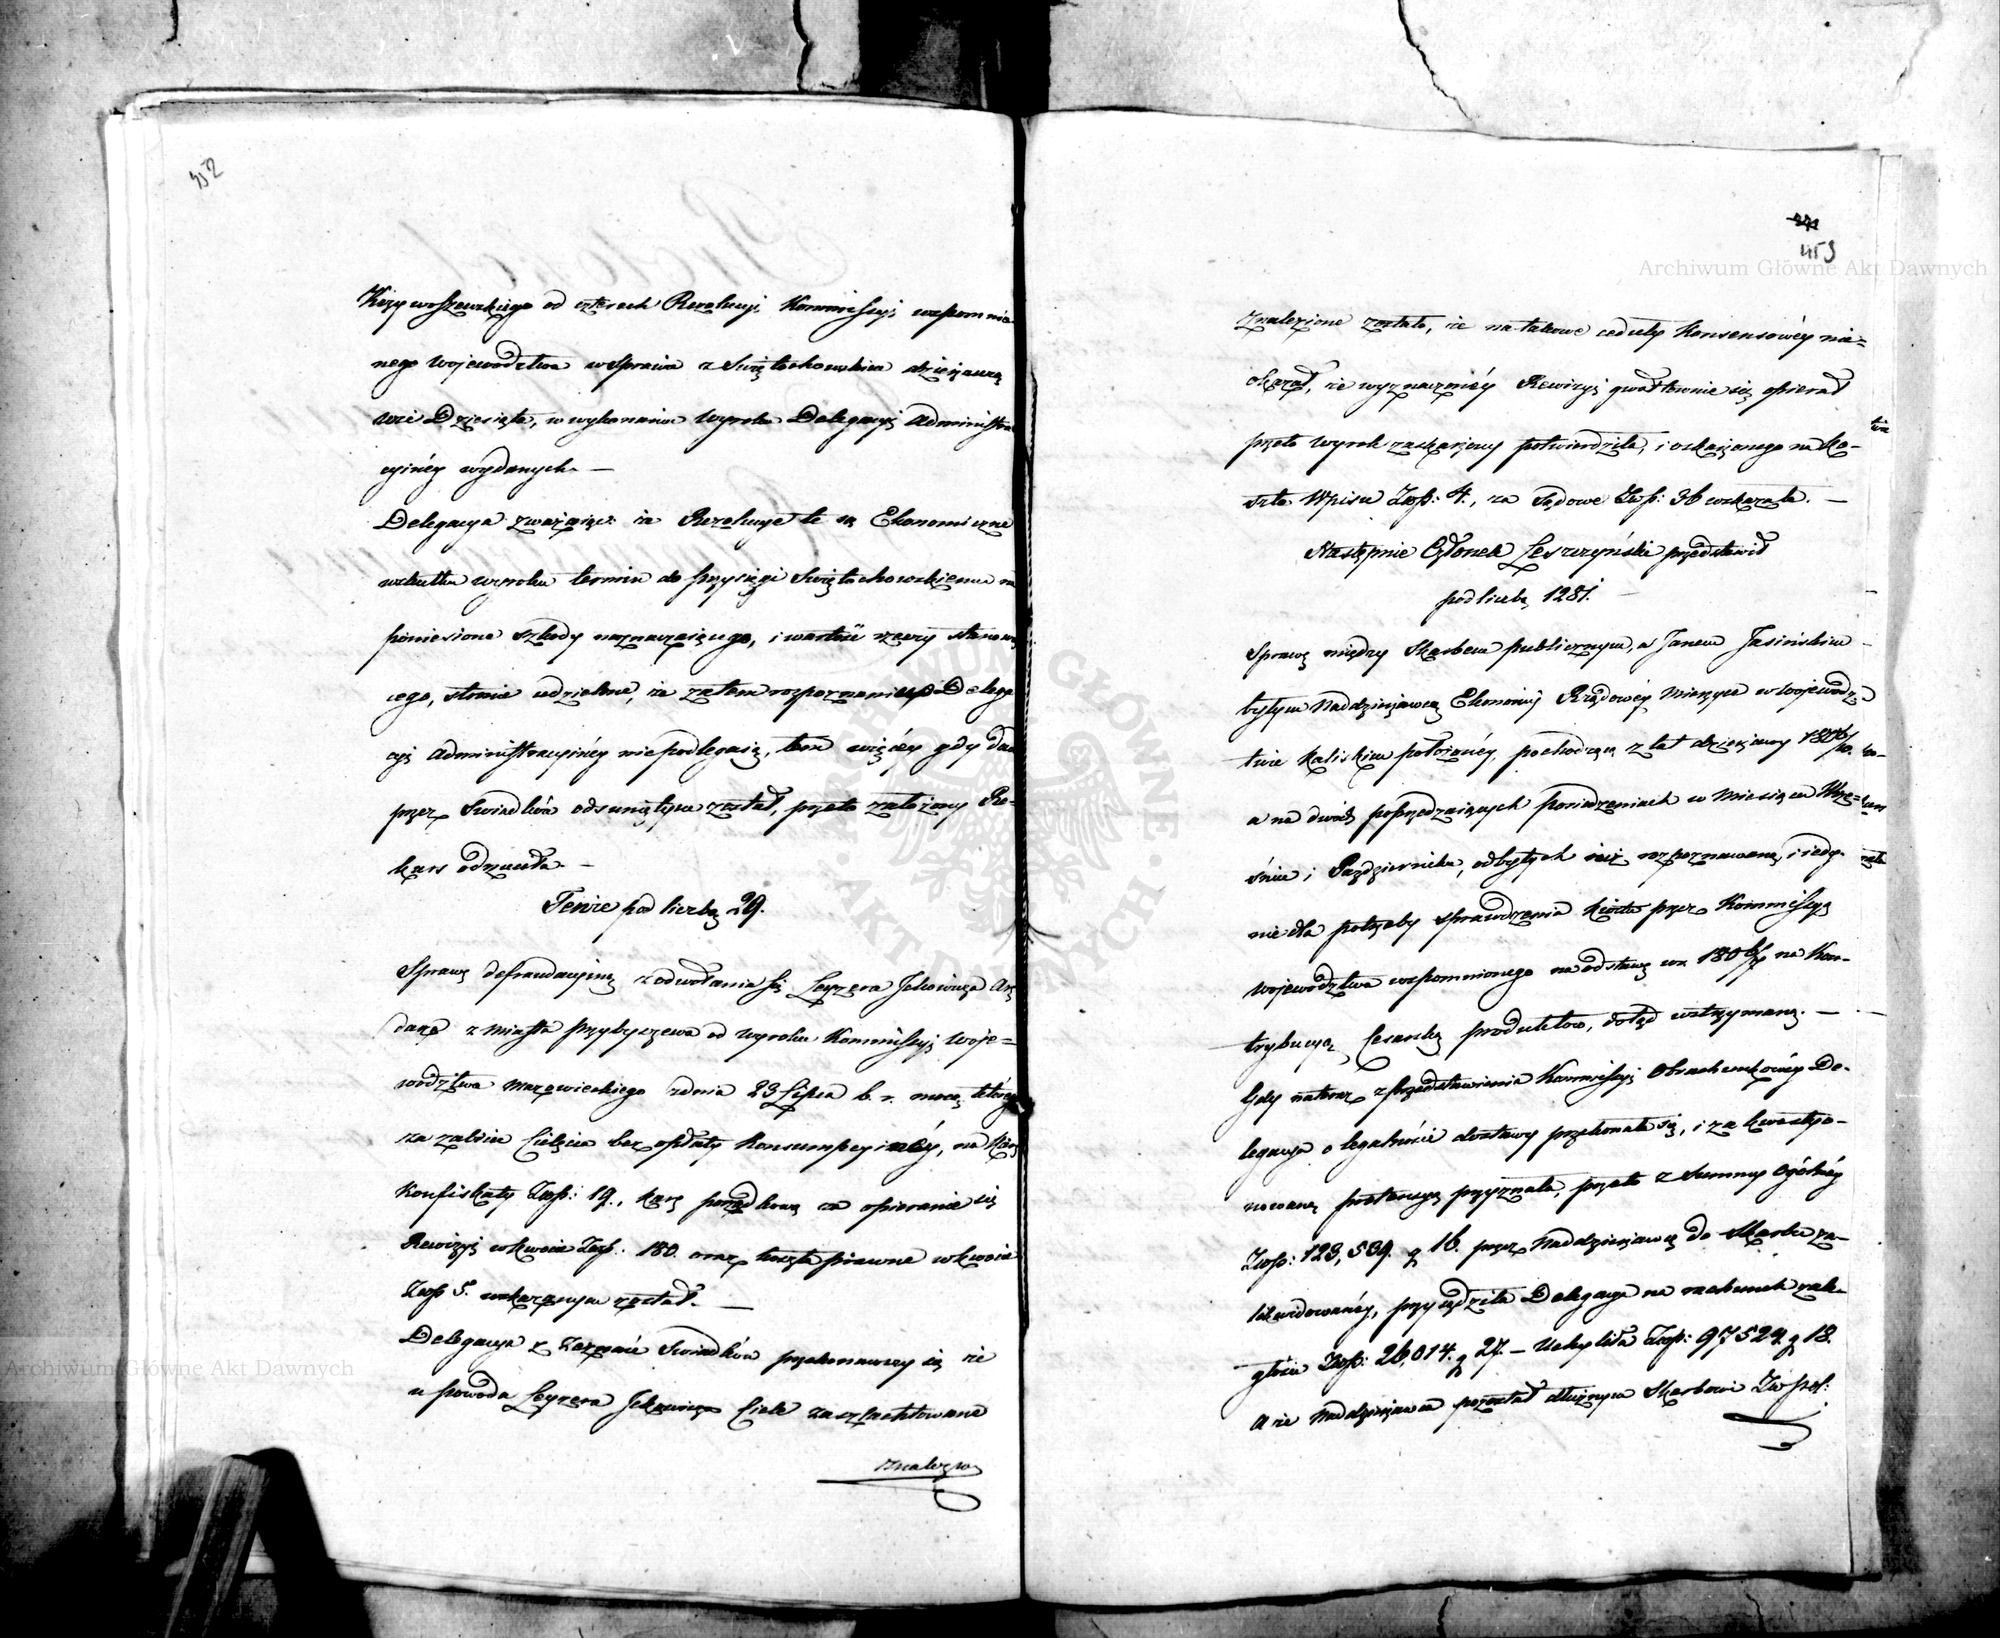 452
Krzywoszewskiego od czterech Rezolucyi Kommissyi wspomnio-
nego Województwa w sprawie z Świętochowskim dzierżawcą
wsi Dziesięta, w wykonaniu wyroku Delegacyi Administra
cyinéy wydanych. —
Delegacya zważając że Rezolucye te są Ekonomiczne
wskutku wyroku termin do przysięgi Świętochowskiemu na
poniesione szkody naznaczaiącego, i wartość rzeczy stanowią
cego, stronie udzielone, że zatem rozpoznaniu Delega
cyi Administracyinéy niepodlegaią, tem więcéy gdy
przez Świadków odsuniętym został, przeto założony Re-
kurs odrzuciła. —
Tenże pod liczbą 29.
Sprawę defraudacyiną z odwołania się Leyzera Jckowicza
darza z miasta Przybyszewa od wyroku Kommissyi Woje=
wództwa Mazowieckiego z dnia 23 Lipca b. r. mocą którego
za zabicie Cielęcia bez opłaty Konsumpcyinéy, na karę
Konfiskaty Złp: 19., karę porządkową za opieranie się
Rewizyi w kwocie Złp: 180. oraz koszta prawne w kwocie
Złp 5. wskazanym został. —
Delegacya z zeznań Świadków przekonawszy się że
u powoda Leyzera Jckowicza Ciele zaszlachtowane
znalezio
453
Znalezione zostało, że na takowe ceduły Konsensowéy nie=
okazał, że wyznaczonéy Rewizyi gwałtownie się opierał
przeto wyrok zaskarżony potwierdziła, i oskarżonego na ko-
szta Wpisu Złp: 4., za Sądowe Złp: 36 wskazała. —
Następnie Członek Leszczyński przedstawił
pod liczbą 1281.
Sprawę między Skarbem publicznym, a Janem Jasińskim
byłym Naddzierżawcą Ekonomii Rządowéy Mierzyce w Wojewódz
twie Kaliskim położonéy, pochodzącą z lat dzierżawy
a na dwóch poprzedzaiących posiedzeniach w Miesiącu Wrze=
śniu i Październiku, odbytych już rozpoznawaną, i iedy-
nie dla potrzeby sprawdzenia kwotów przez Kommissyą
Województwa wspomnionego na odstawę w r. 1806/7 na Kon-
trybucyą Cesarską produktów, dotąd wstrzymaną. —
Gdy nateraz z przedstawienia Kommissyi Obrachunkowéy De-
legacya o legalności dostawy przekonała się, i za kwestyo-
nowaną pretensyą przyznała, przeto z Summy Ogólnéy
Złp: 123,539. g 16. przez Naddzierżawcę do Skarbu za-
likwidowanéy, przysądziła Delegacya na rachunek zale-
głości Złp: 26,014. g 27. — Uchyliła Złp: 97524. g 18.
A że Naddzierżawca pozostał dłużnym Skarbowi Złp: